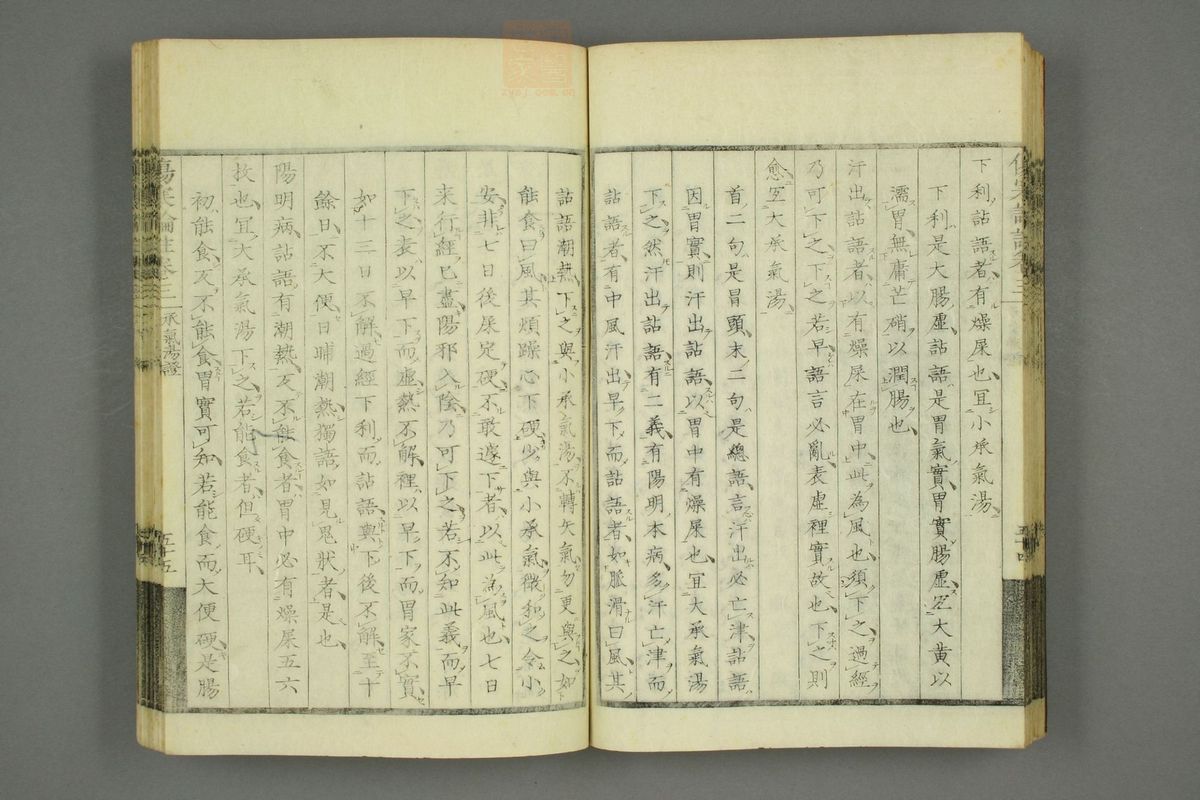 下利詀語者有燥屎也宜小承氣湯
下利是大腸虛詀語是胃氣實胃實腸虛宜大黃以
濡胃無庸芒硝以潤腸也
汗出詀語者以有燥屎在胃中此為風也須下之過經
乃可下之下之若早語言必亂表虛裡實故也下之則
愈宜大承氣湯
首二句是冒頭末二句是總語言汗出必亡津詀語
因胃實則汗出詀語以胃中有燥屎也宜大承氣湯
下之然汗出詀語有二義有陽明本病多汗亡津而
詀語者有中風汗出早下而詀語者如脈滑曰風其
傷寒論註卷三
承氣湯證
五十五
詀語潮熱下之與小承氣湯不轉矢氣勿更與之如
能食曰風其煩躁心下硬少與小承氣微和之令小
安非七日後屎定硬不敢遽下者以此為風也七日
来行經已盡陽邪入陰乃可下之若不知此義而早
下之表以早下而虛熱不解裡以早下而胃家不實
如十三日不解過經下利而詀語與下後不解至十
餘日不大便日晡潮熱獨語如見鬼狀者是也
陽明病詀語有潮熱反不能食者胃中必有燥屎五六
枚也宜大承氣湯下之若能食者但硬耳
初能食反不能食胃實可知若能食而大便硬是腸